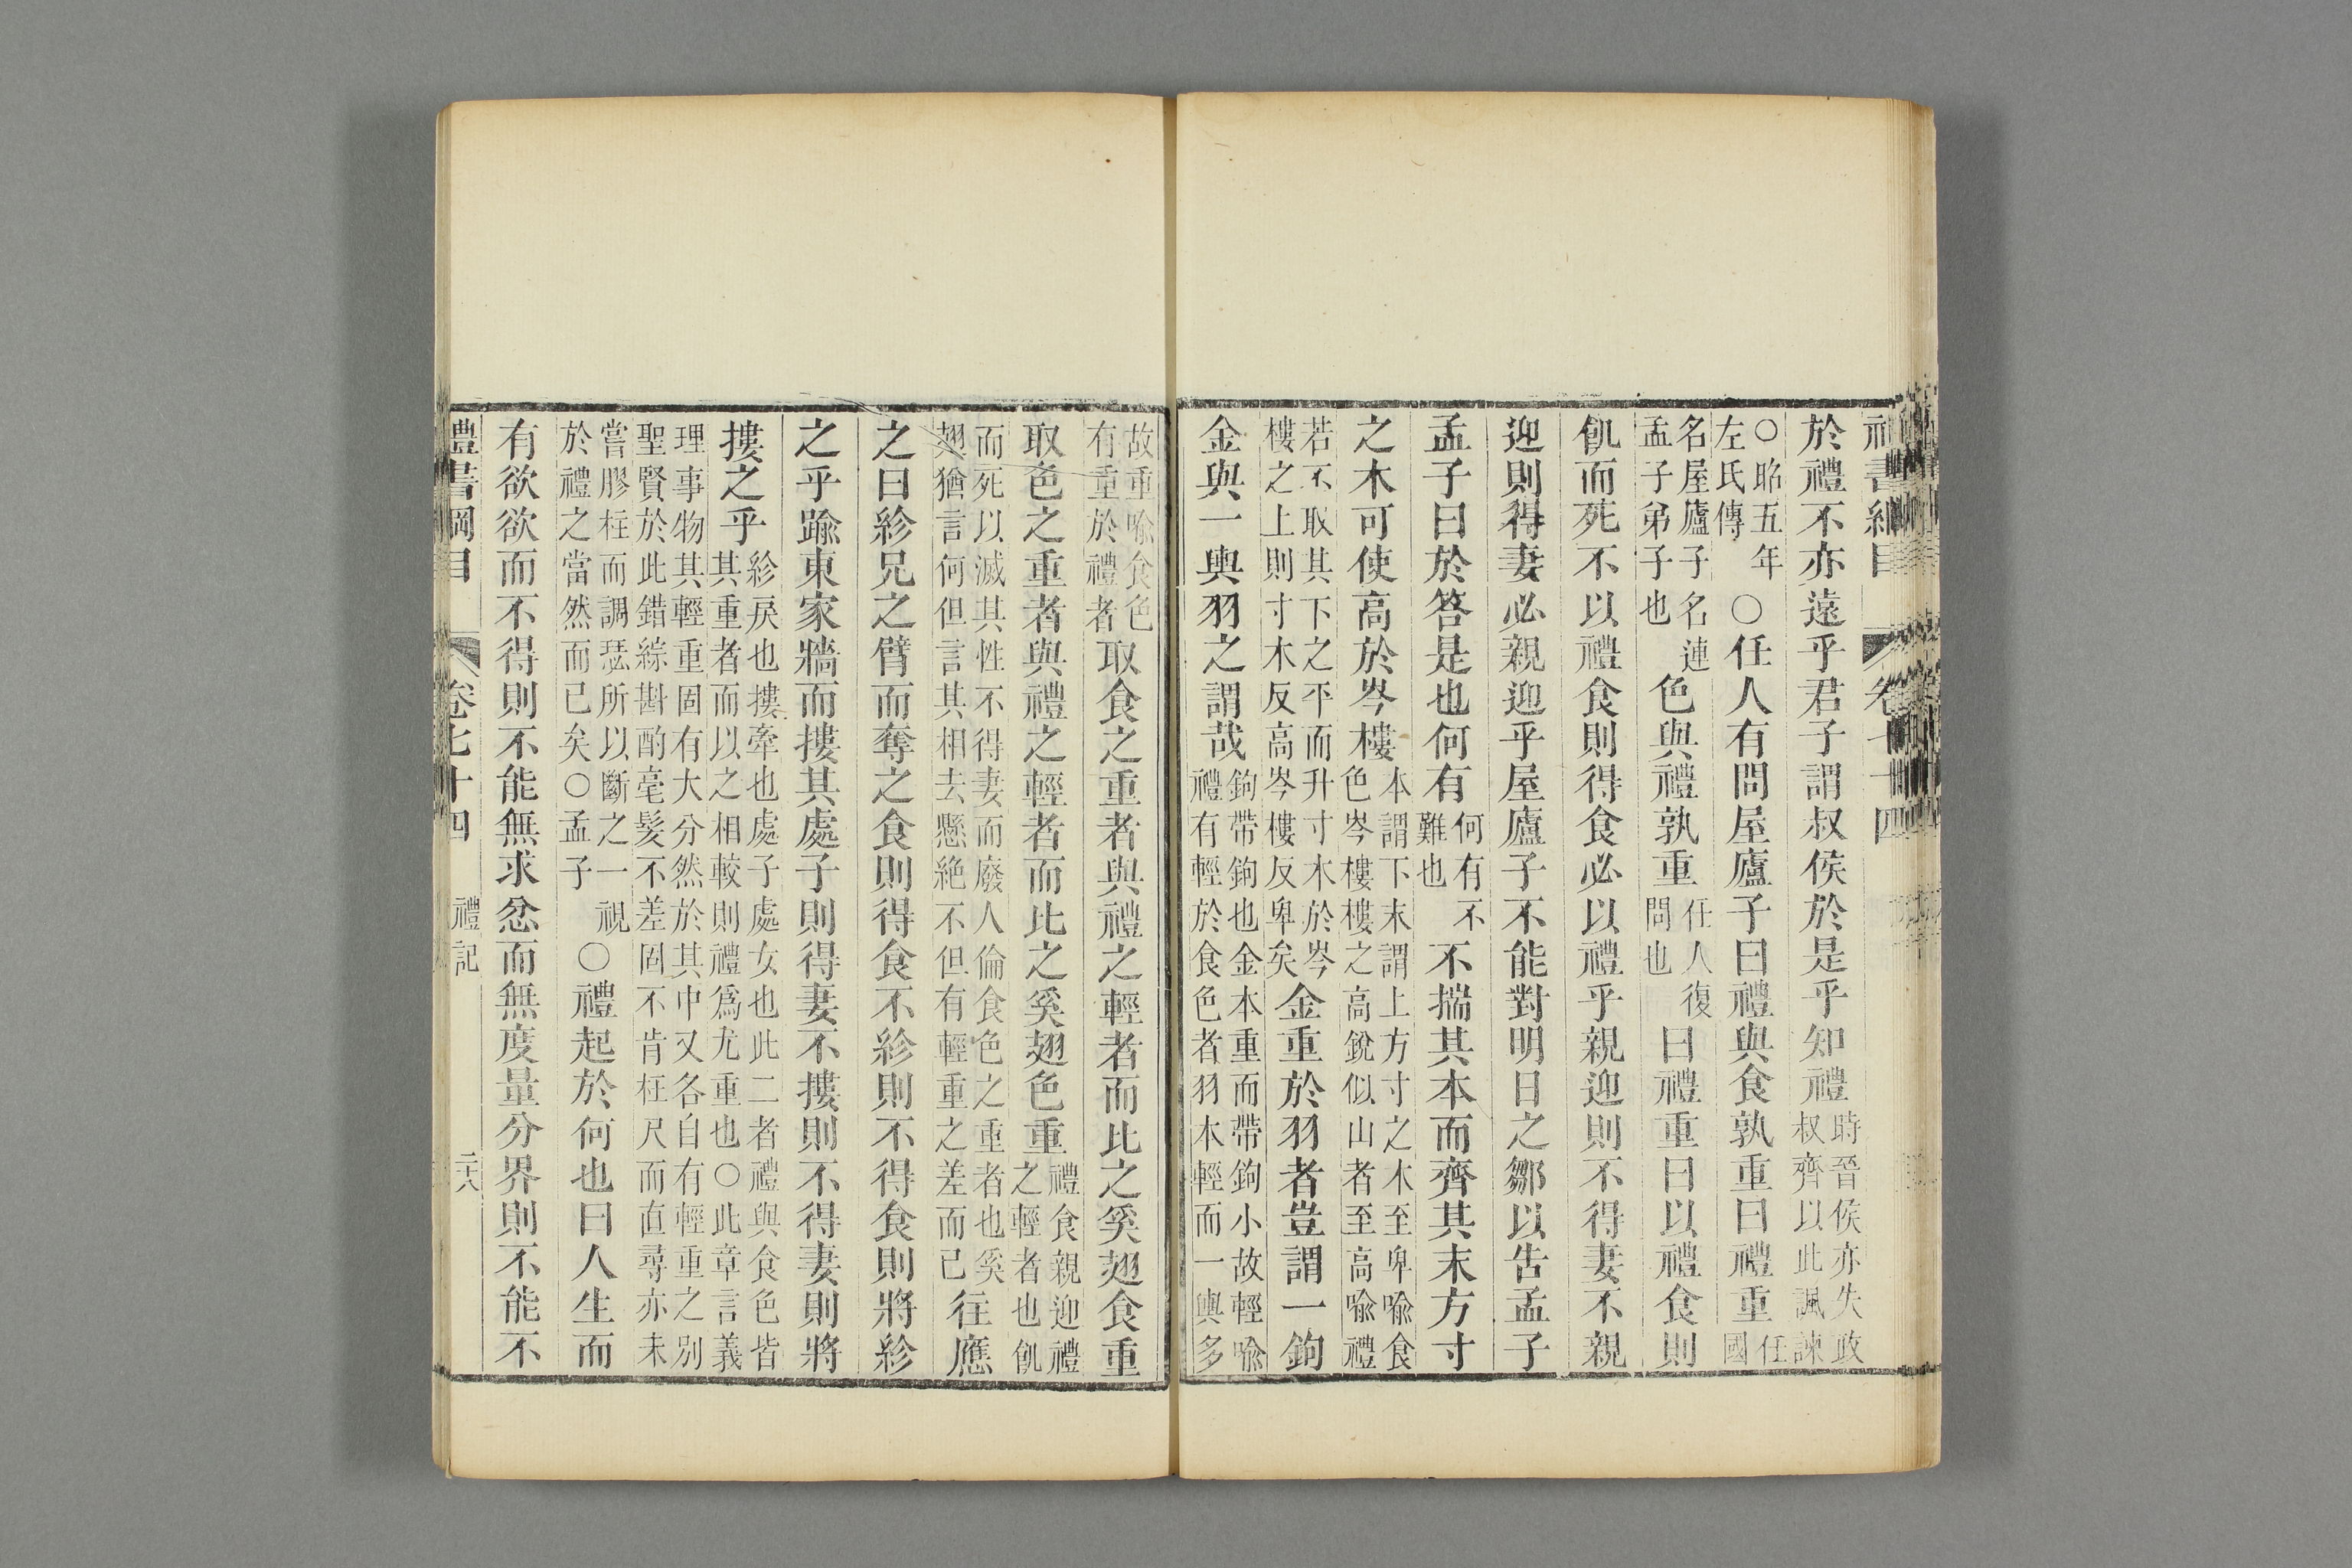 書綱目 卷 十四
於禮不亦遠乎君子謂叔侯於是乎知禮時晉侯亦失政叔齊以此諷諫
○昭五年左氏傳○任人有問屋廬子曰禮與食孰重曰禮重任國
名屋廬子名連孟子弟子也色與禮孰重任人復問也曰禮重曰以禮食則
飢而死不以禮食則得食必以禮乎親迎則不得妻不親
迎則得妻必親迎乎屋廬子不能對明日之鄒以告孟子
孟子曰於答是也何有何有不難也不揣其本而齊其末方寸
之木可使高於岑樓本謂下末謂上方寸之木至卑喻食色岑樓樓之高銳似山者至高喻禮
若不取其下之平而升寸木於岑樓之上則寸木反高岑樓反卑矣金重於羽者豈謂一鉤
金與一輿羽之謂哉鉤帶鉤也金本重而帶鉤小故輕喻禮有輕於食色者羽本輕而一輿多
故重喻食色有重於禮者取食之重者與禮之輕者而比之奚翅食重
取色之重者與禮之輕者而比之奚翅色重禮食親迎禮之輕者也飢
而死以滅其性不得妻而廢人倫食色之重者也奚翅猶言何但言其相去懸絕不但有輕重之差而已往應
之曰紾兄之臂而奪之食則得食不紾則不得食則將紾
之乎踰東家牆而摟其處子則得妻不摟則不得妻則將
摟之乎紾戾也摟牽也處子處女也此二者禮與食色皆其重者而以之相較則禮為尤重也○此章言義
理事物其輕重固有大分然於其中又各自有輕重之別聖賢於此錯綜斟酌毫髮不差固不肯枉尺而直尋亦未
嘗膠柱而調瑟所以斷之一視於禮之當然而已矣○孟子○禮起於何也曰人生而
有欲欲而不得則不能無求忿而無度量分界則不能不
禮書綱目 卷七十四 禮記 二六